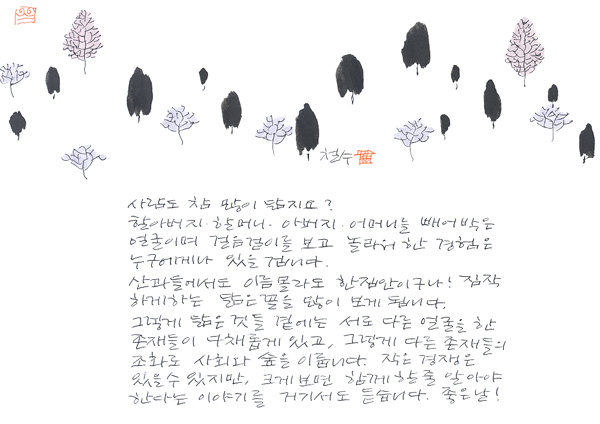 철수
사람도 참 많이 닮지요?
할아버지·할머니·아버지·어머니를 빼어박은
얼굴이며 걸음걸이를 보고 놀라워 한 경험은
누구에게나 있을 겁니다.
산과들에서도 이름몰라도 한집안이구나! 짐작
하게하는 닮은꼴을 많이 보게 됩니다.
그렇게 닮은 것들 곁에는 서로 다른 얼굴을 한
존재들이 다채롭게 있고, 그렇게 다른 존재들의
조화로 사회와 숲을 이룹니다. 작은 경쟁은
있을수 있지만, 크게보면 함께 할 줄 알아야
한다는 이야기를 거기서도 듣습니다. 좋은날!